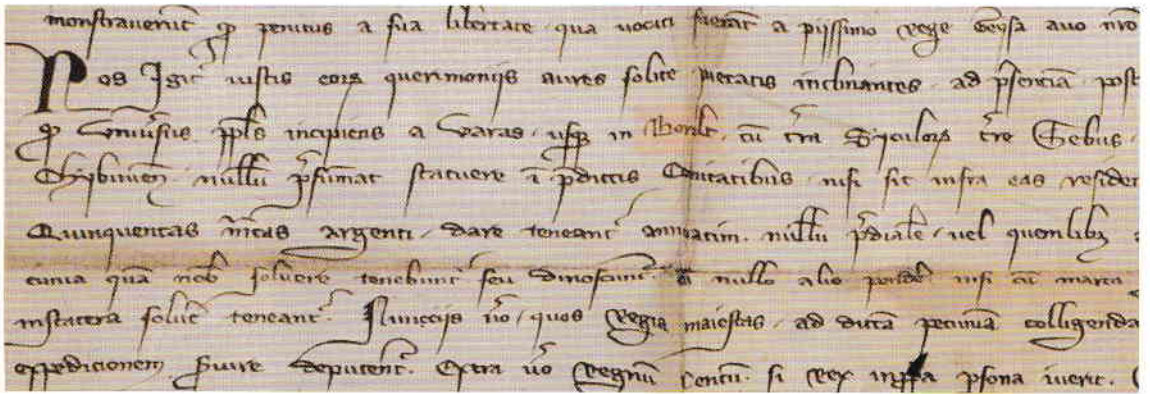 monstraverūt ꝙ penitus a sua libertate qua vocati fuerāt a piissimo rege Geysa avo nr̄o
Nos Igit᷑ iustis eoꝝ querimoniis aures solite pietatis inclinantes ad p̄senciā post
ꝙ Univ̄sus ppl̄s incipiens a Waras usqꝫ in Boralt cū tr̄a Syculoꝝ tr̄e Sebus
Chybinieñ nullū p̄sumat statuere ī p̄dictis Comitatibus nisi sit infra eas residen
Quinquentas m̄cas argenti dare teneant᷑ annuatim nullū p̄diale vel quemlibꝫ
cunia quā nob̄ solvere tenebunt᷑ seu dinoscunt᷑ nullo alio ponde nisi cū marca
instatera solve᷑ teneant᷑ Nuncciis v̄o quos Regia maiestas ad dictā pecuniā colligenda
expedicionem s̄vire deputent᷑ Extra v̄o Regnū Centū si Rex in ꝓp̄a p̄sona iverit